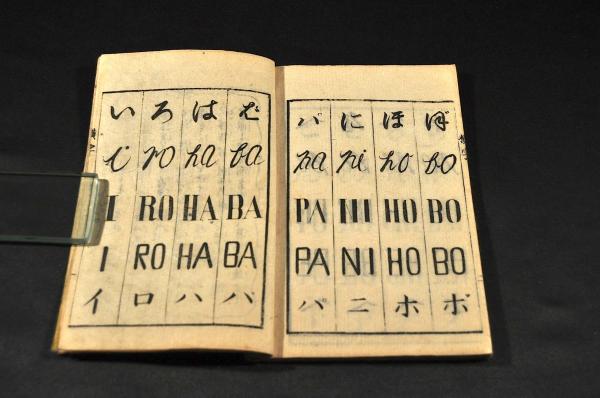 いろはば
i ro ha ba
I RO HA BA
I RO HA BA
イロハバ
パにほぼ
pa ni ho bo
PA NI HO BO
PA NI HO BO
パニホボ